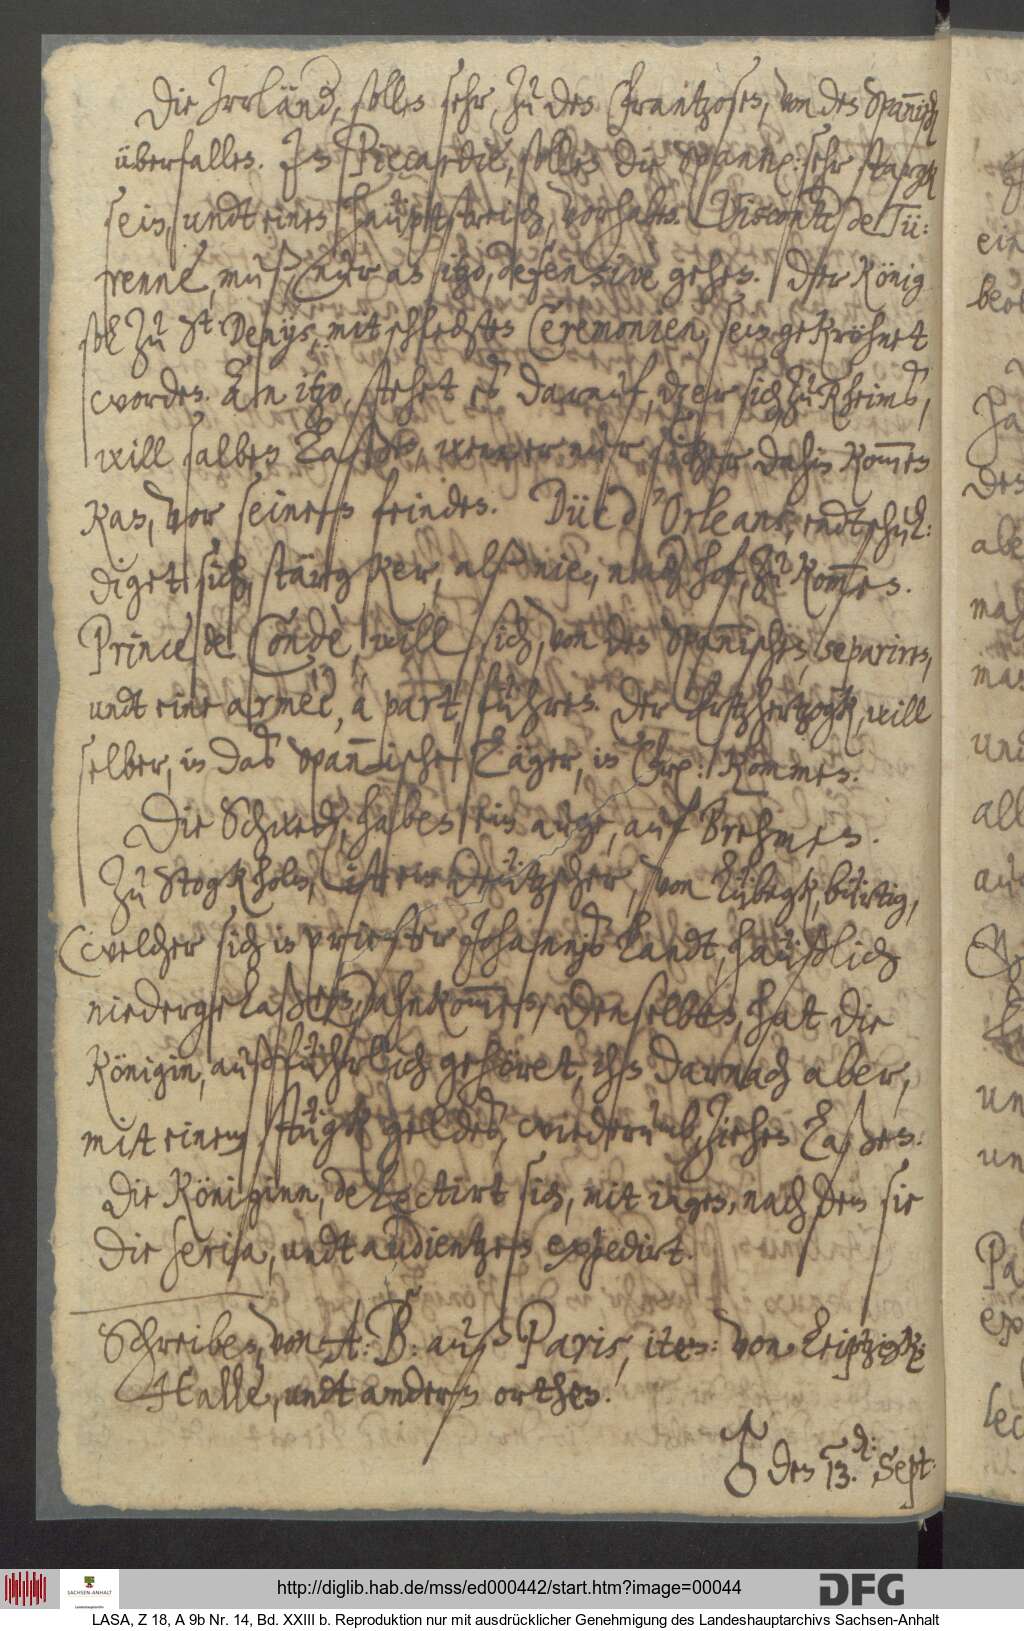 Die Irrländ, sollen sehr, zu den Frantzosen, von den Spannisch
überfallen. In Piccardie, sollen die Spann: sehr starck
sein, undt einen haüptstreich, vorhaben. Visconte de Tü:
renne, muß nur an itzo, defensive gehen. Der König
sol zu St. Denys, mit schlechten Ceremonien, sein gekröhnet
worden. An itzo, stehet es darauf, der sich zu Rheims,
will salben laßen, wenn er nur sicher dahin kommen
kan, vor seinen feinden. Düc d'Orleans, endtschul:
diget sich, stärcker, alß nie, nach hof, zu kommen.
Prince de Condè, will sich, von den Spannischen, separiren,
undt eine armèe, à part, führen. Der Ertzhertzogk, will
selber, in das Spannische Läger, in Perß: kommen.
Die Schwedn, haben ein auge, auf Brehmen.
Zu Stogkholm, ist ein Deützscher, von Lübegk, bürtig,
welcher sich in priester Johannis Landt, haüßlich
niedergelaßen, ahnkommen, denselben, hat die
Königin, außführlich gehöret, ihn darnach aber,
mit einem stügk geldes, wiederumb, ziehen laßen.
Die Königinn, delectirt sich, mit jagen, nach dem sie
die seria, undt audientzen expedirt.
Schreiben, von A: B: auß Paris, item: von Leiptzigk:
Halle, undt andern orthen.
♂ den 13. d: Sept:
http://diglib.hab.de/mss/ed000442/start.htm?image=00044
SACHSEN-ANHALT
DFG
LASA, Z 18, A 9b Nr. 14, Bd. XXIII b. Reproduktion nur mit ausdrücklicher Genehmigung des Landeshauptarchivs Sachsen-Anhalt